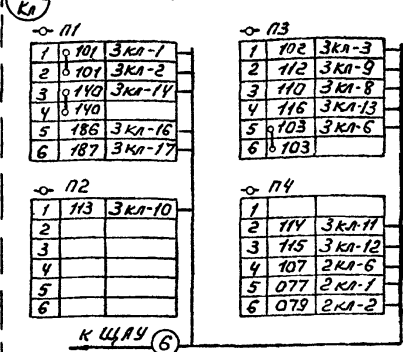 Кл
П1
1 101 3кл-1
2 101 3кл-2
3 140 3кл-14
4 140
5 186 3кл-16
6 187 3кл-17
П2
1 113 3кл-10
2
3
4
5
6
П3
1 102 3кл-3
2 112 3кл-9
3 110 3кл-8
4 116 3кл-13
5 103 3кл-6
6 103
П4
1
2 114 3кл-11
3 115 3кл-12
4 107 2кл-6
5 077 2кл-1
6 079 2кл-2
К ЩАУ 6